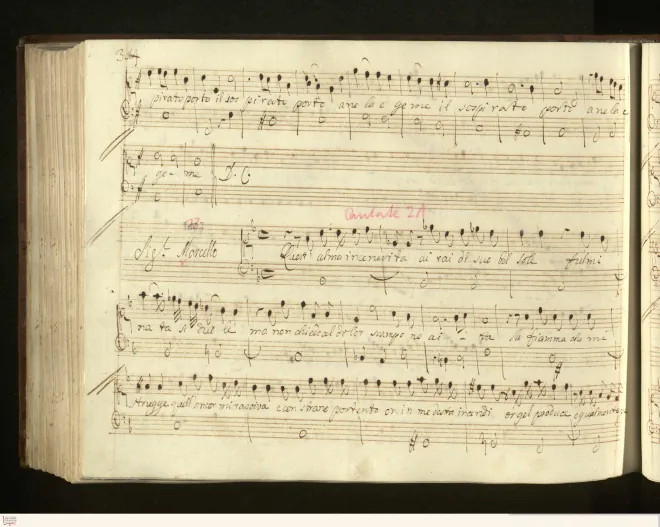 344
pirato porto il sos pirato porto anela e geme il sospirato porto anela e
ge - me D. C.
Cantate 21
Sig.r Marcello Quest' alma incenerita ai rai di suo bel sole fulmi
na ta si due le ma non chiede al dolor scampo ne ai - ta la fiamma che mi
strugge quell' ancor mi ravviva e con strano portento or in me desta incendi or gel produce egualmente